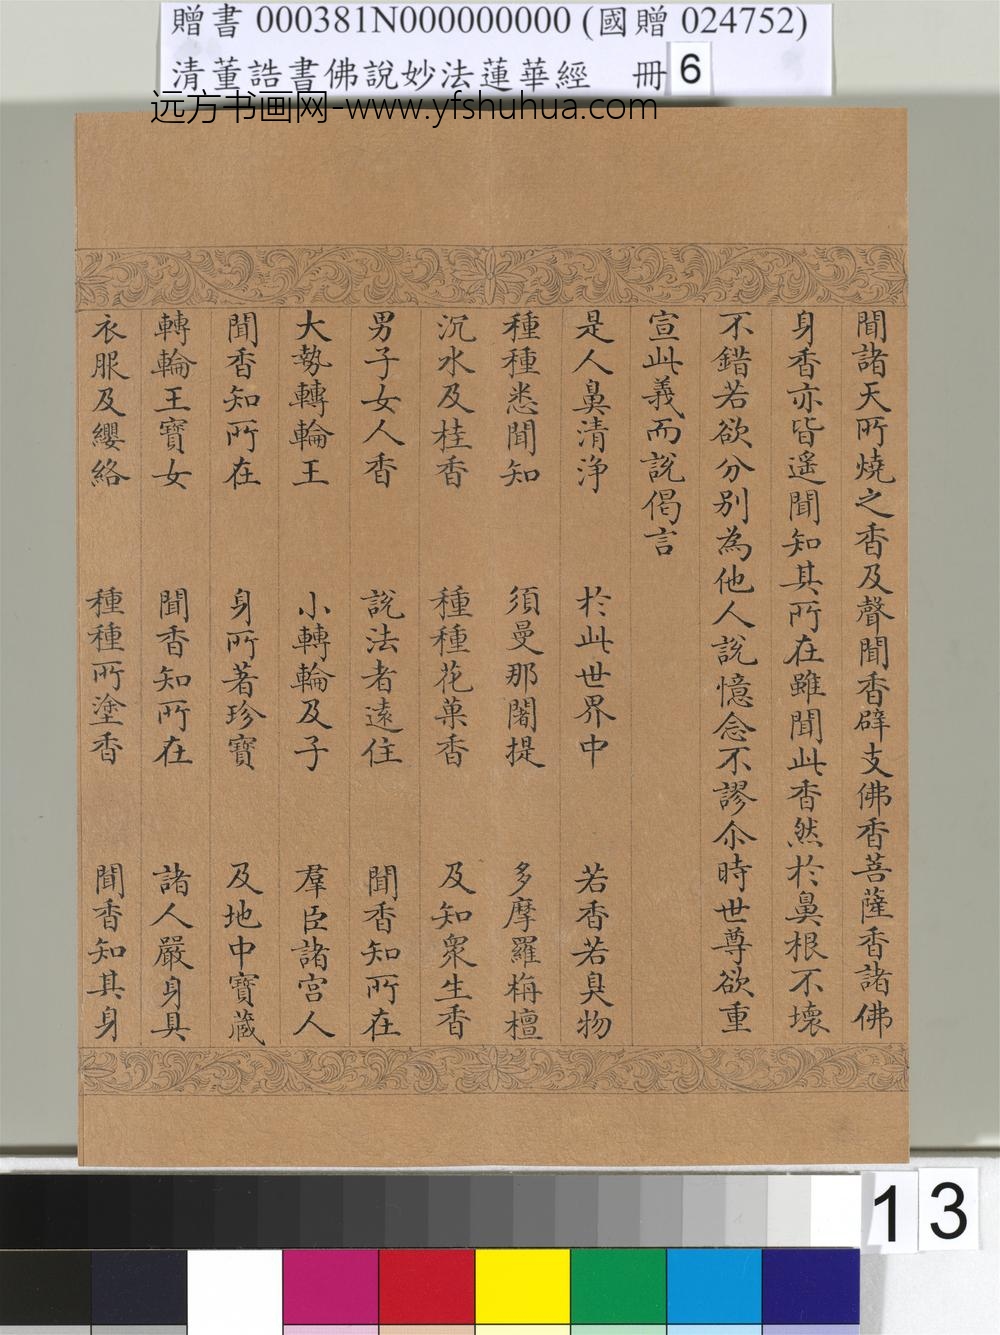 贈書 000381N000000000 (國贈 024752)
清董誥書佛說妙法蓮華經 冊 6
远方书画网-www.yfshuhua.com
聞諸天所燒之香及聲聞香辟支佛香菩薩香諸佛
身香亦皆遙聞知其所在雖聞此香然於鼻根不壞
不錯若欲分別為他人說憶念不謬尒時世尊欲重
宣此義而說偈言
是人鼻清淨 於此世界中 若香若臭物
種種悉聞知 須曼那闍提 多摩羅栴檀
沉水及桂香 種種花菓香 及知衆生香
男子女人香 說法者遠住 聞香知所在
大勢轉輪王 小轉輪及子 羣臣諸宮人
聞香知所在 身所著珍寶 及地中寶藏
轉輪王寶女 聞香知所在 諸人嚴身具
衣服及纓絡 種種所塗香 聞香知其身
13